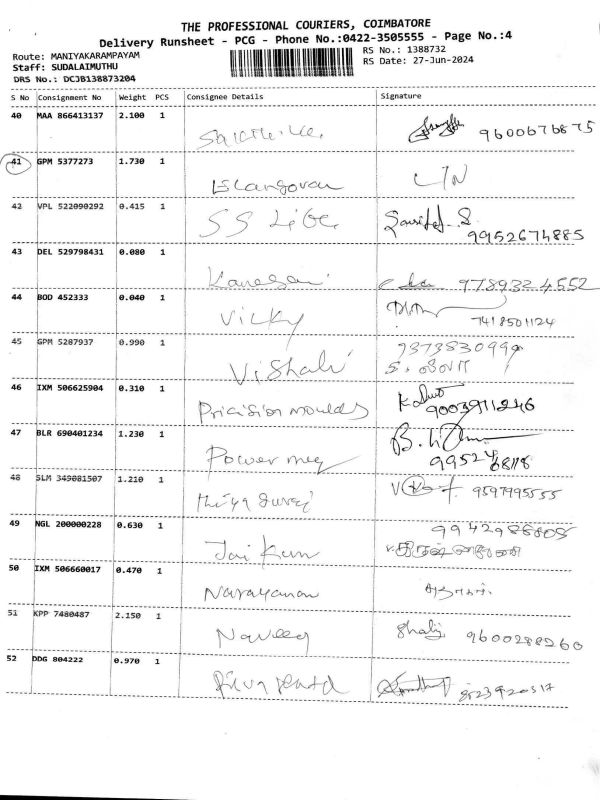 THE PROFESSIONAL COURIERS, COIMBATORE
Delivery Runsheet - PCG - Phone No.:0422-3505555 - Page No.:4
Route: MANIYAKARAMPAYAM
RS No.: 1388732
Staff: SUDALAIMUTHU
RS Date: 27-Jun-2024
DRS No.: DCJB138873204
S No Consignment No Weight PCS Consignee Details Signature
40 MAA 866413137 2.100 1
9600676875
41 GPM 5377273 1.730 1 Elangovan
42 VPL 522090292 0.415 1 SS Life
9952674885
43 DEL 529798431 0.080 1 Kanagani 9789324552
44 BOD 452333 0.040 1 Vicky
7418501124
45 GPM 5287937 0.990 1 Vishali
46 IXM 506625904 0.310 1 Pricision moulds
9003911246
47 BLR 690401234 1.230 1 Power meg
9952468118
48 SLM 349081507 1.210 1
9597995555
49 NGL 200000228 0.630 1 Jai Kum
9942988805
50 IXM 506660017 0.470 1 Narayanan
51 KPP 7480487 2.150 1 Naveen
9600288260
52 DDG 804222 0.970 1